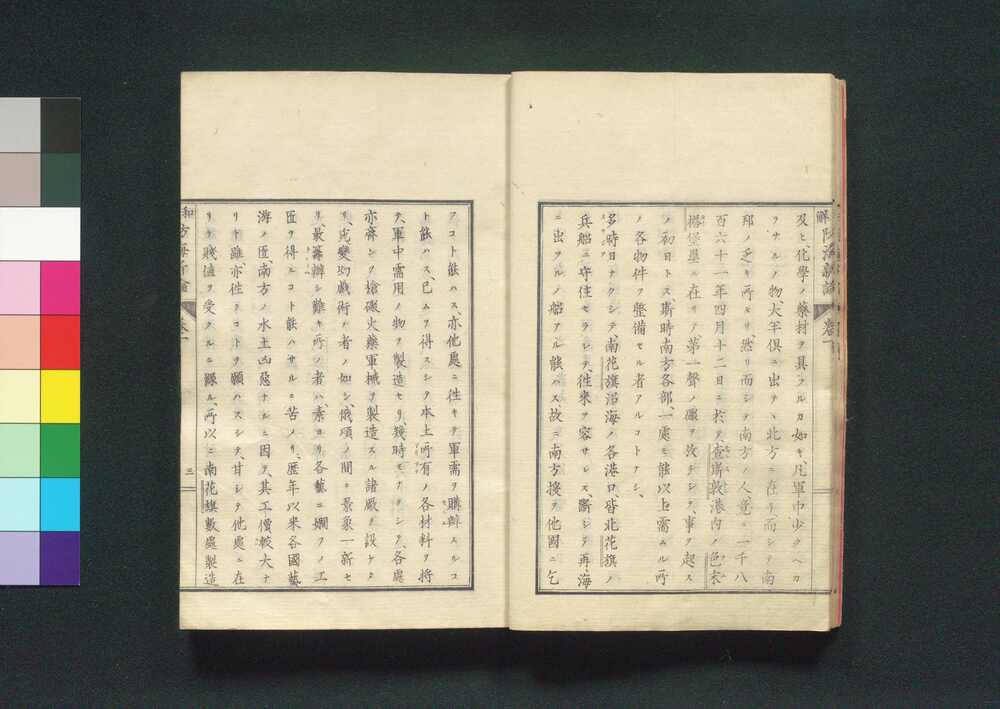 及ヒ化學ノ藥材ヲ具フルカ如キ、凡軍中少クヘカ
ラサルノ物、大半倶ニ出テヽ北方ニ在リ而シテ南
邦ノ乏キ所ナリ、然リ而シテ南方ノ人竟ニ一千八
百六十一年四月十二日ニ於テ、査爾敦港内ノ色末
ニ在リテ、第一聲ノ礮ヲ放チシヲ、事ヲ起ス
ノ初日トス、斯時南方各部、一處モ能以上需ムル所
ノ各物件ヲ整備セル者アルコトナシ、
多時日ナクシテ、南花旗沿海ノ各港口、皆北花旗ノ
兵船ニ守住セラレテ、往來ヲ容サレス、斷シテ再海
ニ出ツルノ船アル能ハス故ニ南方援ヲ他國ニ乞
フコト能ハス、亦他處ニ往キテ軍需ヲ購辨スルコ
ト能ハス、已ムヲ得スシテ本土所有ノ各材料ヲ將
テ、軍中需用ノ物ヲ製造セリ、幾時モナクシテ、各處
亦齊シク槍礮火藥軍械ヲ製造スル諸廠ヲ設ケタ
リ、
リ、最籌辨シ難キ所ノ者ハ、素ヨリ各藝ニ嫺フノ工
匠ヲ得ルコト能ハサルニ苦ノリ、歴年以來各國藝
ノ匠、南方ノ水土凶惡ナルニ因テ、其工價較大ナ
リト雖、亦往クコトヲ願ハスシテ、甘シテ他處ニ在
リテ賤値ヲ受クルニ縁ル、所以ニ南花旗數處製造
三